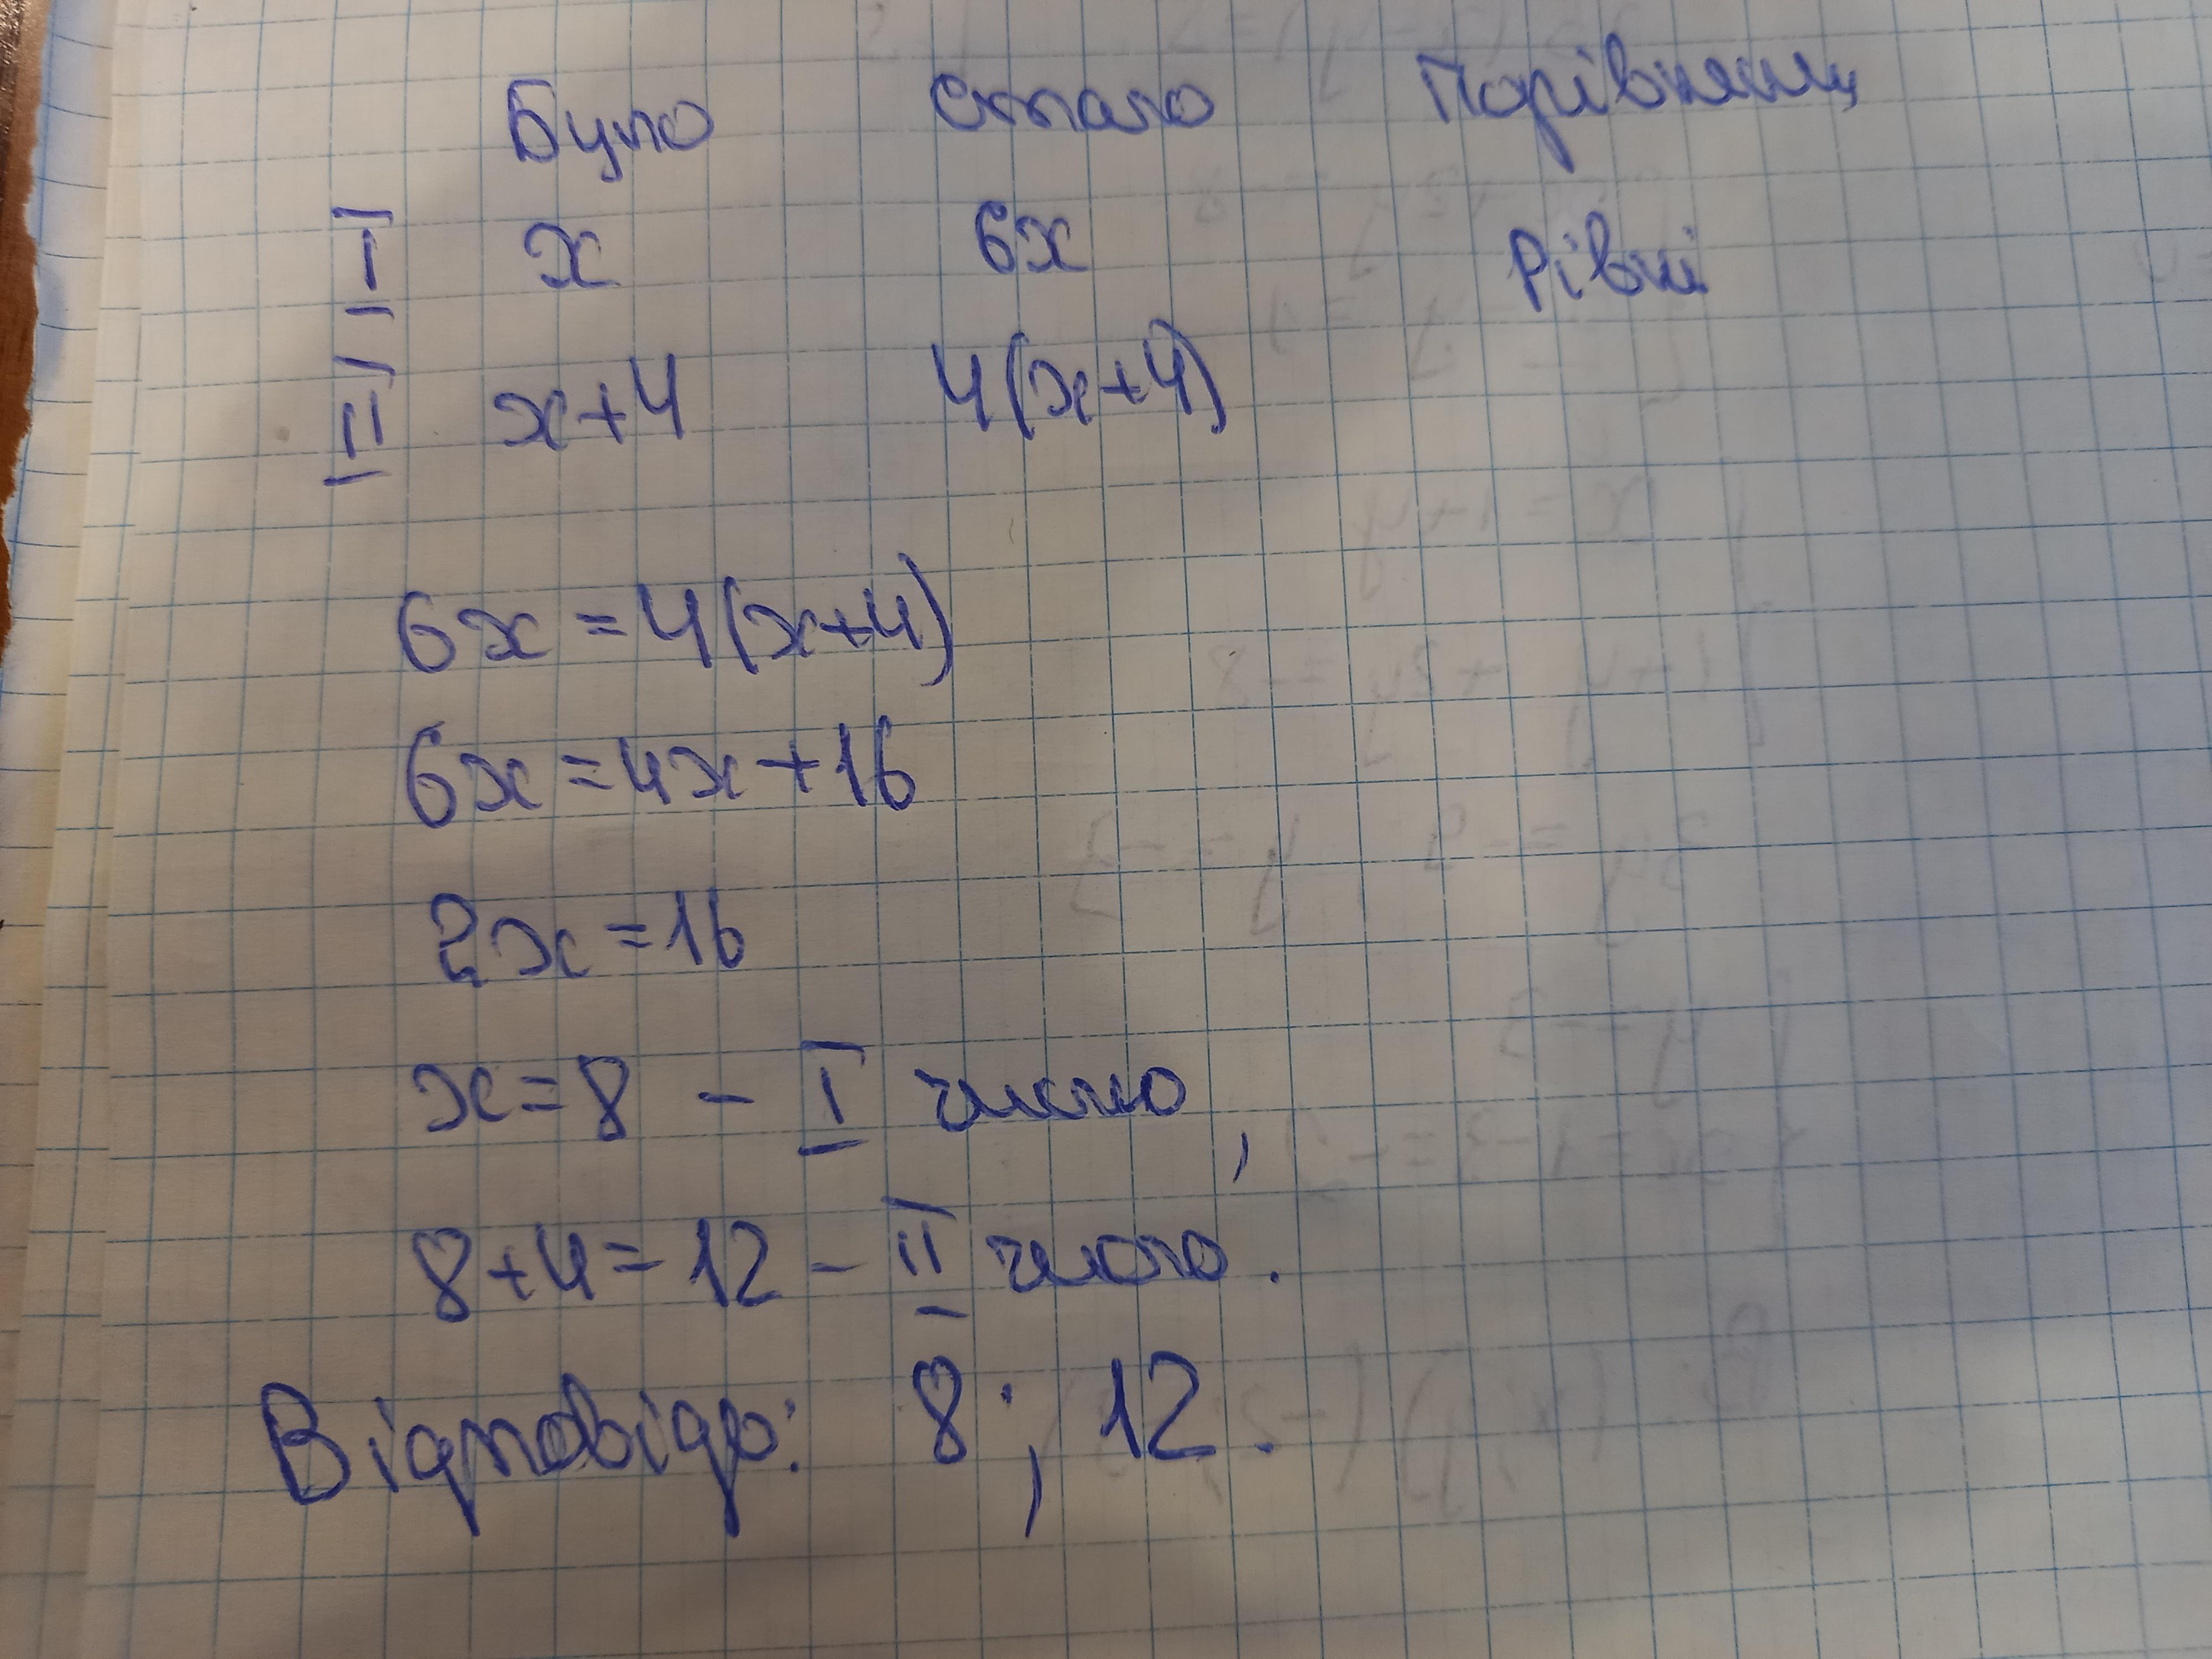 Було стало Порівняння
I x 6x Рівні
II x+4 4(x+4)
6x = 4(x+4)
6x = 4x + 16
2x = 16
x = 8 - I число,
8 + 4 = 12 - II число.
Відповідь: 8; 12.